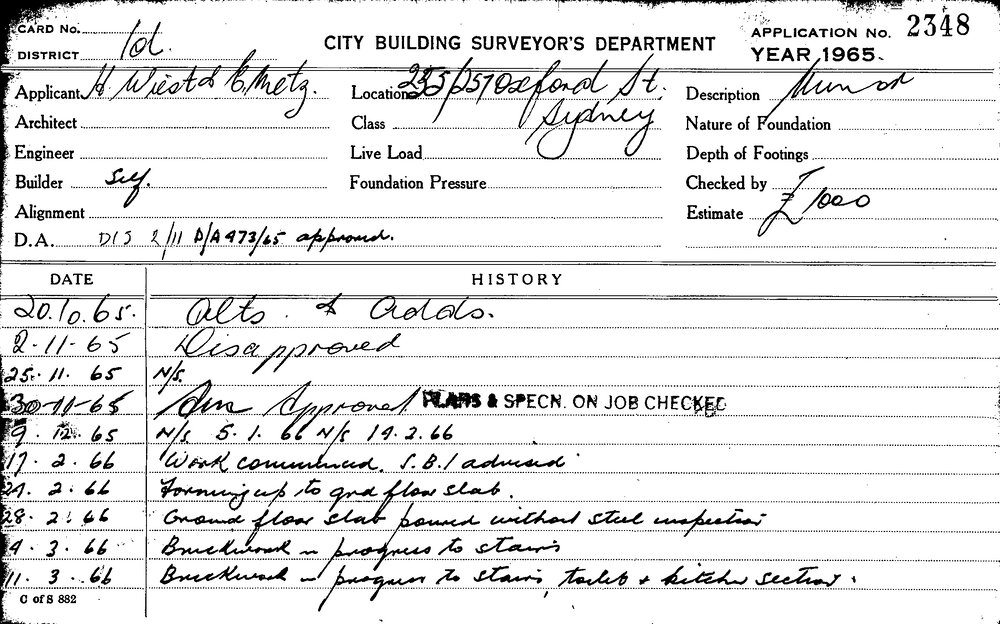 CARD No.
DISTRICT 1d.
CITY BUILDING SURVEYOR'S DEPARTMENT
APPLICATION No. 2348
YEAR 1965.
Applicant H. Wiest & E. Metz.
Location 255/257 Oxford St. Sydney
Description
Architect
Class
Nature of Foundation
Engineer
Live Load
Depth of Footings
Builder Self.
Foundation Pressure
Checked by
Alignment
Estimate £1000
D.A. DIS 2/11 D/A 473/65 approved.
DATE HISTORY
20.10.65. Alts. & Adds.
2-11-65 Disapproved
25. 11. 65 N/S.
30-11-65 Approval PLANS & SPECN. ON JOB CHECKED
9. 12. 65 N/S 5. 1. 66 N/S 14. 2. 66
17. 2. 66 Work commenced. S.B.I advised
2. 66 Forming up to grd floor slab.
28. 2. 66 Ground floor slab poured without steel inspection
4. 3. 66 Brickwork in progress to stairs
11. 3. 66 Brickwork in progress to stairs, toilet & kitchen section.
C of S 882